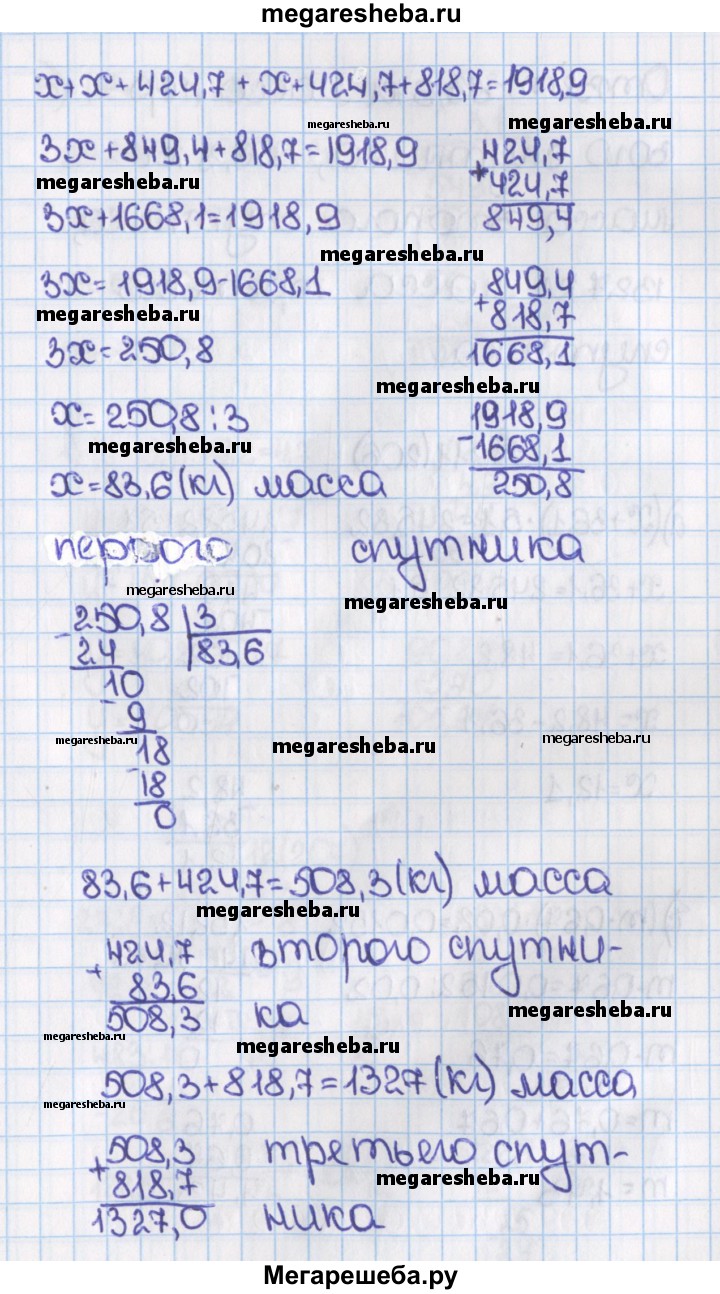 megaresheba.ru
x+x+424,7+x+424,7+818,7=1918,9
megaresheba.ru
megaresheba.ru
3x+849,4+818,7=1918,9
424,7
+
424,7
849,4
megaresheba.ru
3x+1668,1=1918,9
megaresheba.ru
3x=1918,9-1668,1
849,4
+
818,7
1668,1
megaresheba.ru
3x=250,8
megaresheba.ru
x=250,8:3
1918,9
-1668,1
250,8
megaresheba.ru
x=83,6(кг) масса
первого спутника
megaresheba.ru
megaresheba.ru
-250,8 3
24 83,6
10
-
9
18
-
18
0
megaresheba.ru
megaresheba.ru
megaresheba.ru
83,6+424,7=508,3(кг) масса
megaresheba.ru
второго спутни-
ка
424,7
+
83,6
508,3
megaresheba.ru
megaresheba.ru
megaresheba.ru
508,3+818,7=1327(кг) масса
megaresheba.ru
третьего спут-
ника
508,3
+
818,7
1327,0
megaresheba.ru
Мегарешеба.ру